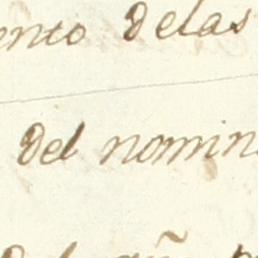 ento delas
del nomin